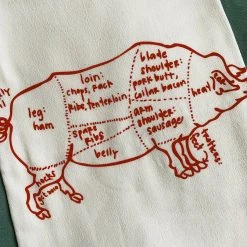 loin:
chops, rack
ribs, tenderloin
blade
shoulder:
pork butt,
collar bacon
head
leg:
ham
spare
ribs
arm
shoulder:
sausage
belly
hocks